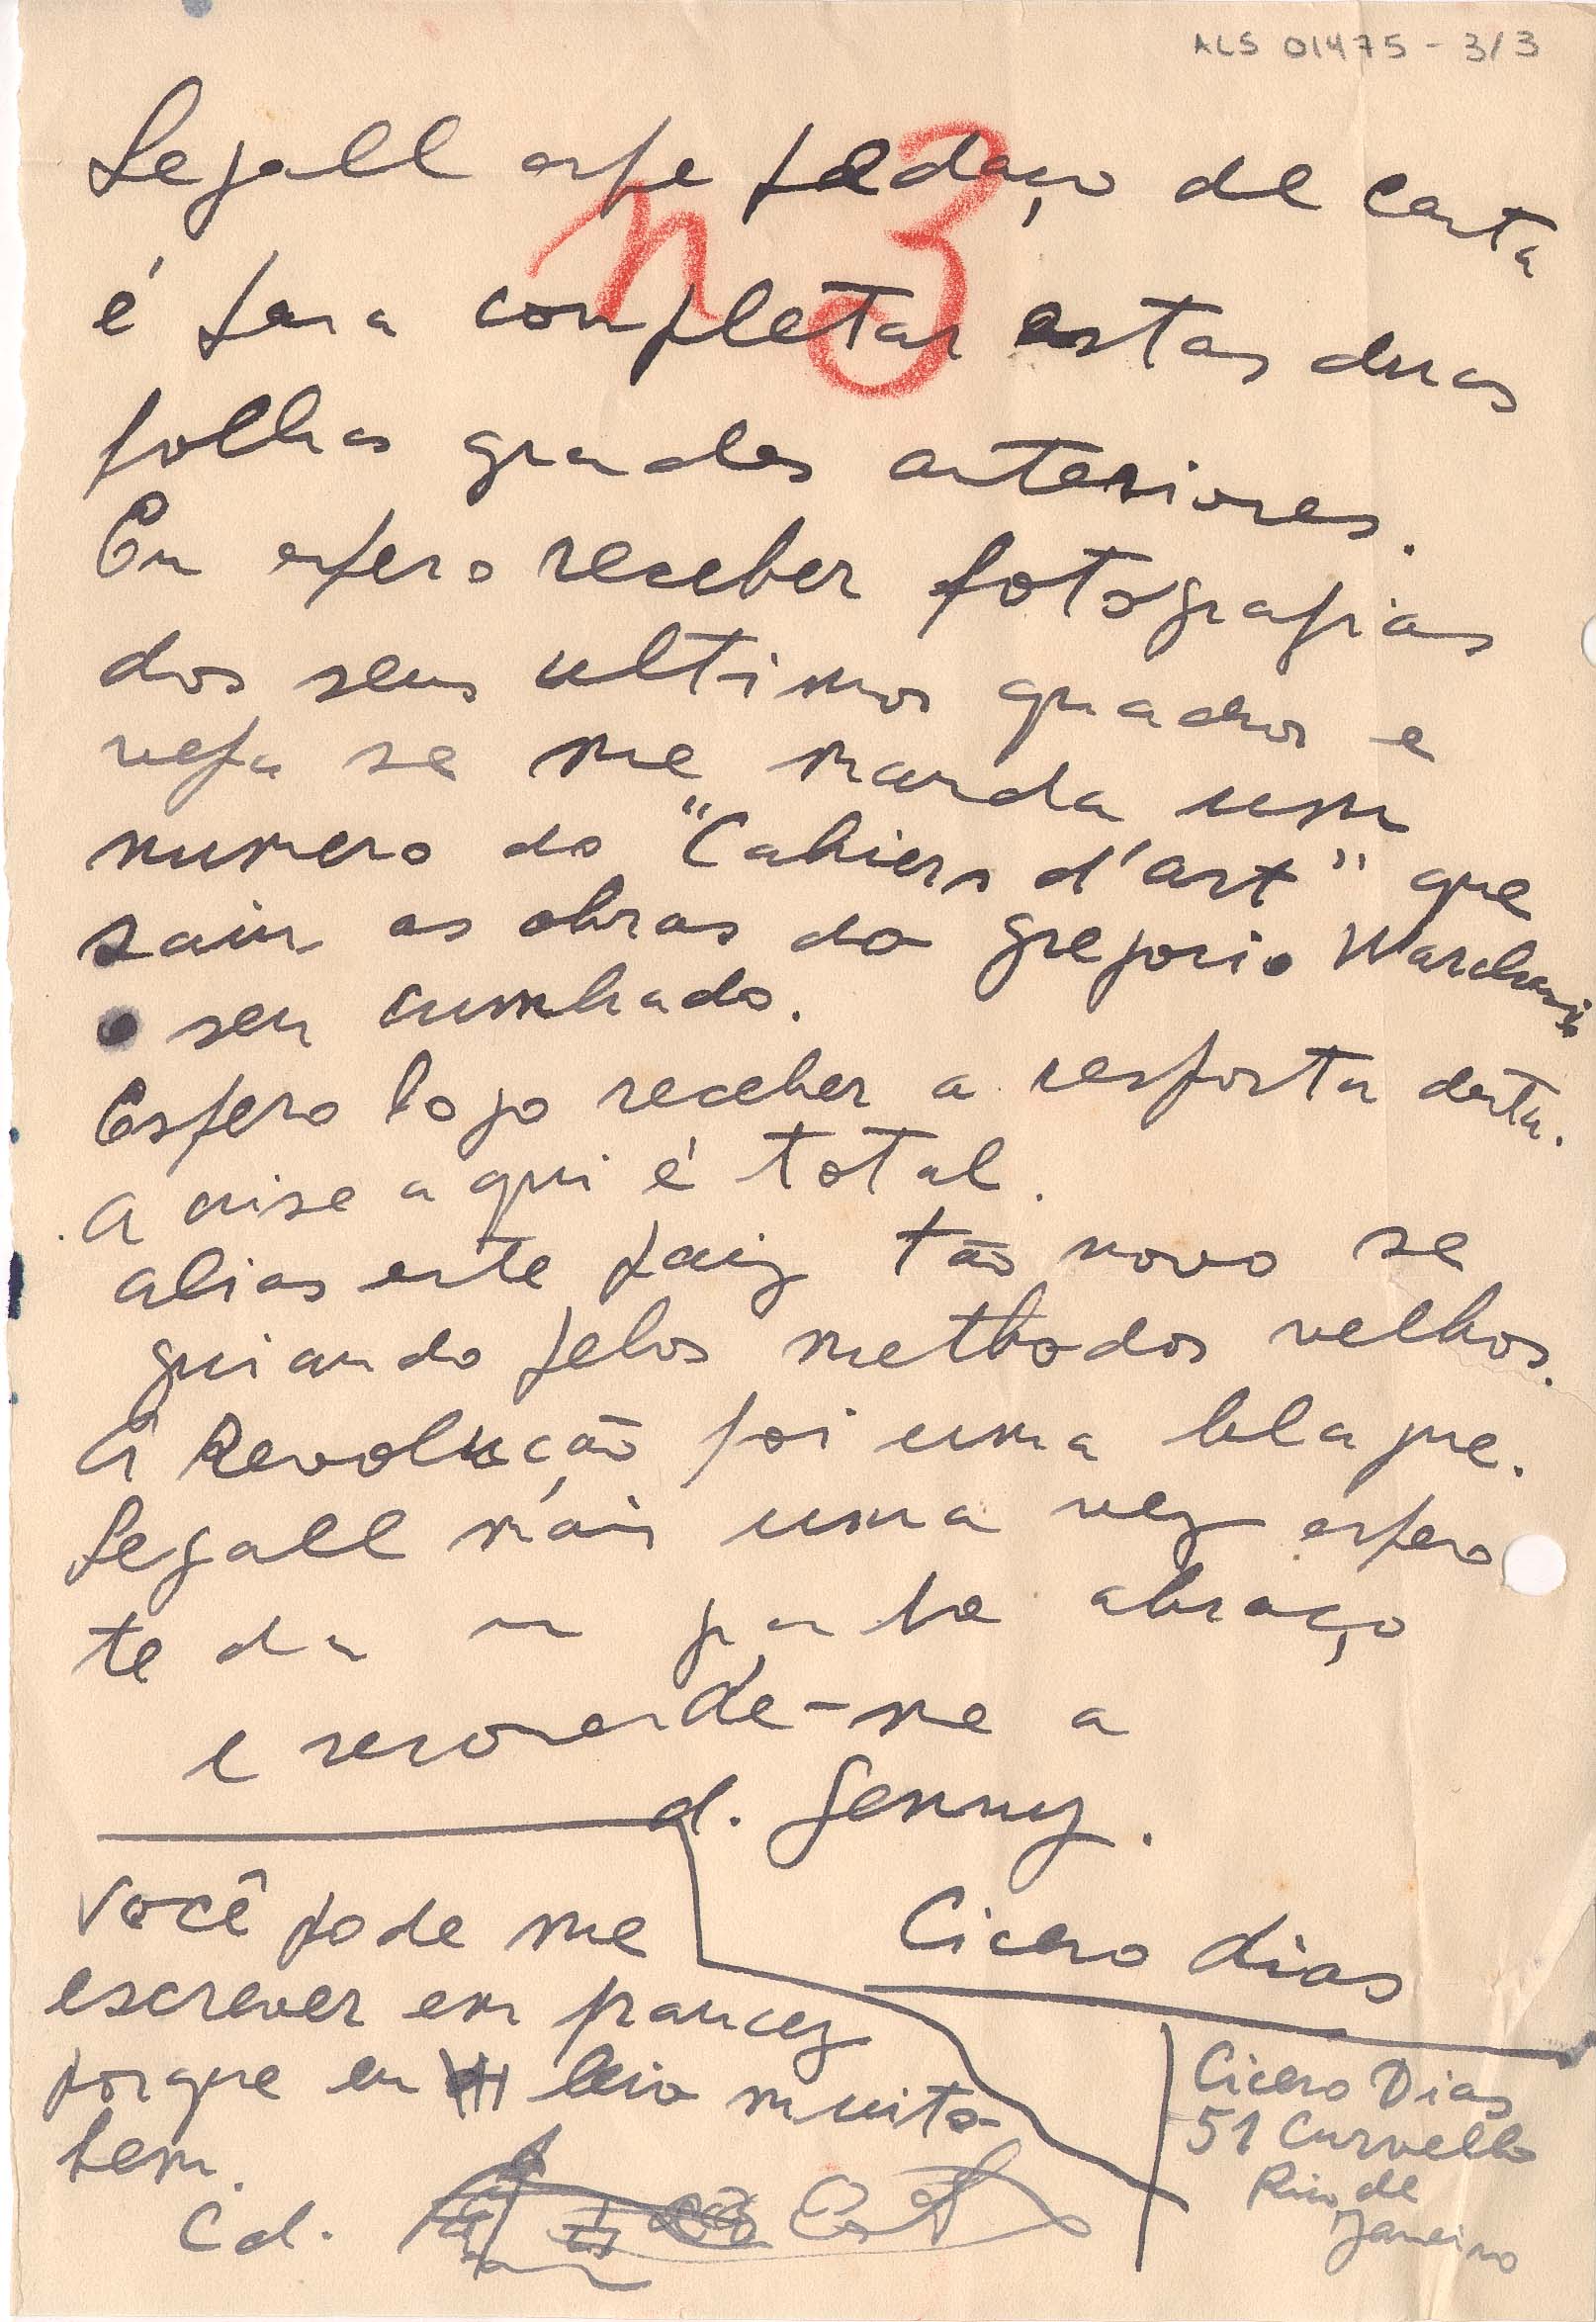 ALS 01475 - 3/3
n 3
Segall este pedaço de carta
é para completar estas duas
folhas grandes anteriores.
Eu espero receber fotografias
dos seus ultimos quadros e
veja se me manda um
numero do "Cahiers d'art" que
saiu as obras do Gregorio Warchavchik
o seu cumhado.
Espero logo receber a resposta desta.
A crise aqui é total.
Alias este paiz tão novo se
guiando pelos methodos velhos.
A Revolução foi uma blague.
Segall mais uma vez espero
te da um abraço
e recomende-me a
d. Jenny.
Cicero Dias
Você pode me
escrever em francez
porque eu leio muito
bem.
Cd.
Cicero Dias
51 Curvello
Rio de
Janeiro